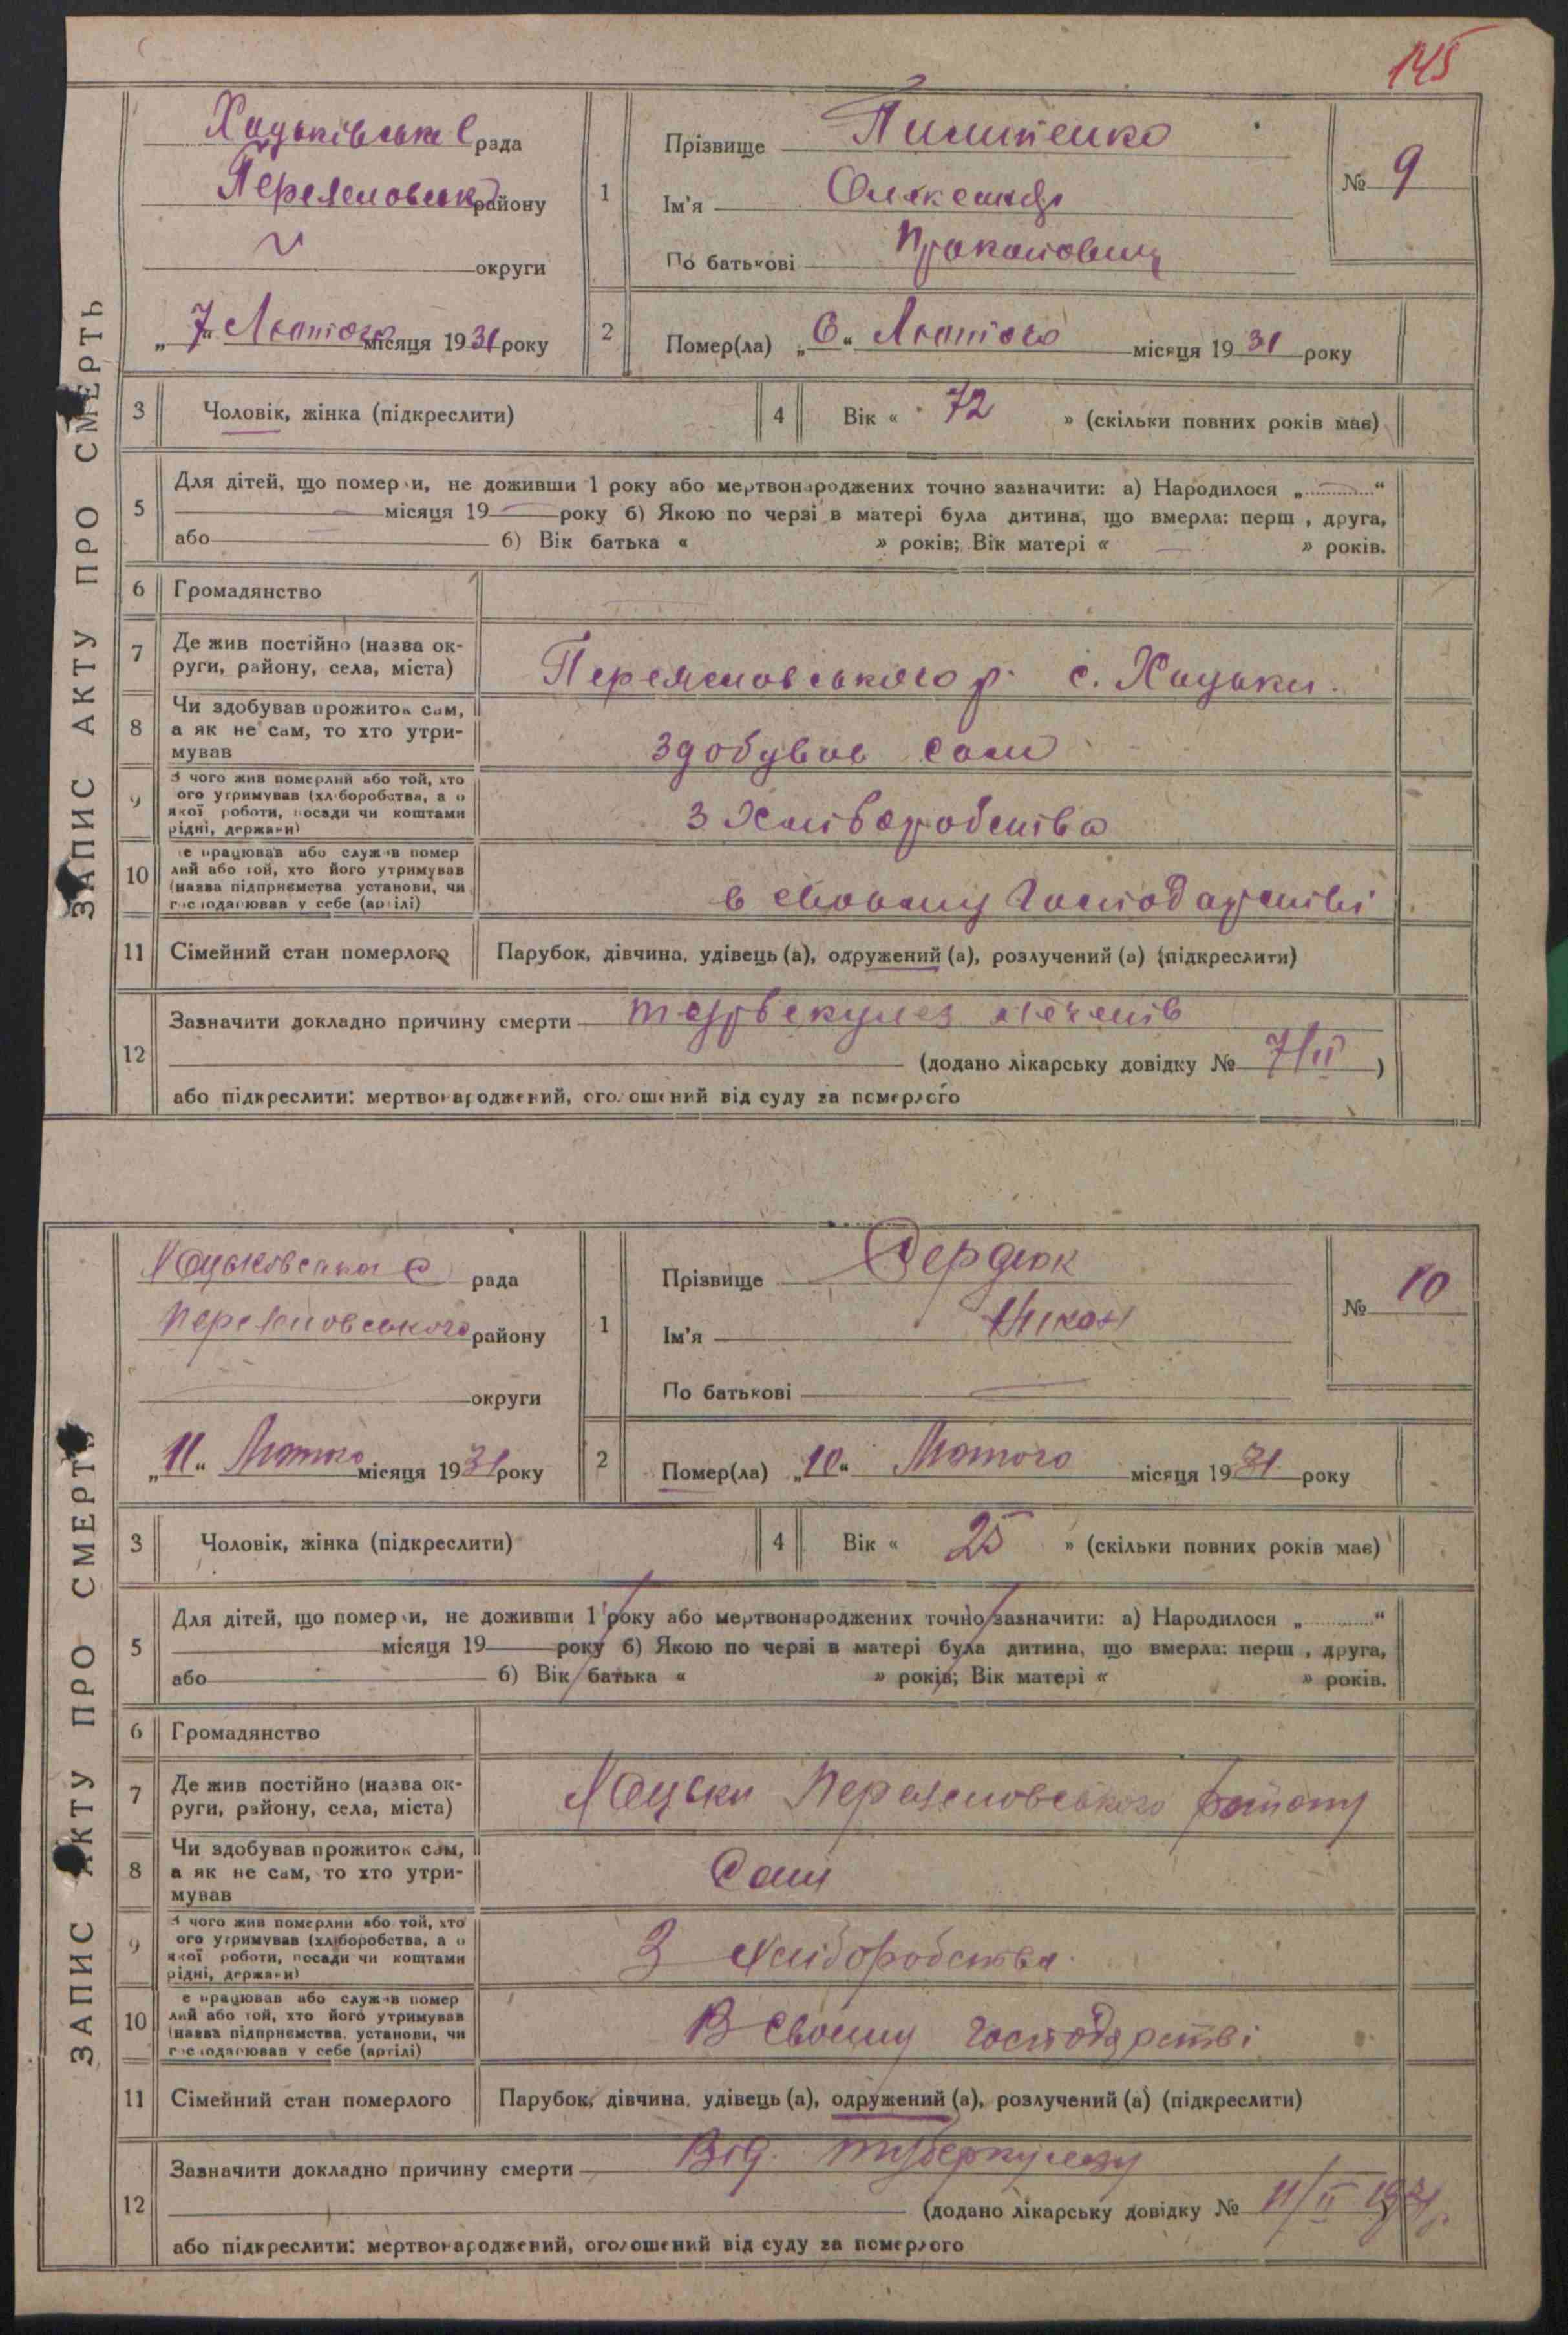 145
ЗАПИС АКТУ ПРО СМЕРТЬ
Хацьківська с рада
Переяславськ району
округи
„7“ Лютого місяця 1931 року
1
Прізвище Пилипенко
Ім'я Олександр
По батькові Прокопович
№ 9
2
Помер(ла) „6“ Лютого місяця 1931 року
3 Чоловік, жінка (підкреслити)
4 Вік « 72 » (скільки повних років має)
5 Для дітей, що помер и, не доживши 1 року або мертвонароджених точно зазначити: а) Народилося „ “
місяця 19 року б) Якою по черзі в матері була дитина, що вмерла: перш , друга,
або 6) Вік батька « » років; Вік матері « » років.
6 Громадянство
7 Де жив постійно (назва ок-
руги, району, села, міста)
с. Хацьки.
8 Чи здобував прожиток сам,
а як не сам, то хто утри-
мував
здобував сам
9 З чого жив померлий або той, хто
ого утримував (хліборобства, а о
якої роботи, посади чи коштами
рідні, держави)
З Хліборобства
10 е працював або служив помер
лий або той, хто його утримував
(назва підприємства установи, чи
господарював у себе (артілі)
в своєму Господарстві
11 Сімейний стан померлого
Парубок, дівчина, удівець (а), одружений (а), розлучений (а) (підкреслити)
12 Зазначити докладно причину смерти
(додано лікарську довідку № 7/II )
або підкреслити: мертвонароджений, оголошений від суду за померлого
ЗАПИС АКТУ ПРО СМЕРТЬ
Хацьковська с рада
району
округи
„11“ Лютого місяця 1931 року
1
Прізвище Сердюк
Ім'я Никон
По батькові
№ 10
2
Помер(ла) „10“ Лютого місяця 1931 року
3 Чоловік, жінка (підкреслити)
4 Вік « 25 » (скільки повних років має)
5 Для дітей, що помер и, не доживши 1 року або мертвонароджених точно зазначити: а) Народилося „ “
місяця 19 року б) Якою по черзі в матері була дитина, що вмерла: перш , друга,
або 6) Вік батька « » років; Вік матері « » років.
6 Громадянство
7 Де жив постійно (назва ок-
руги, району, села, міста)
Хацьки району
8 Чи здобував прожиток сам,
а як не сам, то хто утри-
мував
Сам
9 З чого жив померлий або той, хто
ого утримував (хліборобства, а о
якої роботи, посади чи коштами
рідні, держави)
З хліборобства
10 е працював або служив помер
лий або той, хто його утримував
(назва підприємства, установи, чи
господарював у себе (артілі)
В своєму господарстві
11 Сімейний стан померлого
Парубок, дівчина, удівець (а), одружений (а), розлучений (а) (підкреслити)
12 Зазначити докладно причину смерти Від туберкульозу
(додано лікарську довідку № 11/II 1931 )
або підкреслити: мертвонароджений, оголошений від суду за померлого